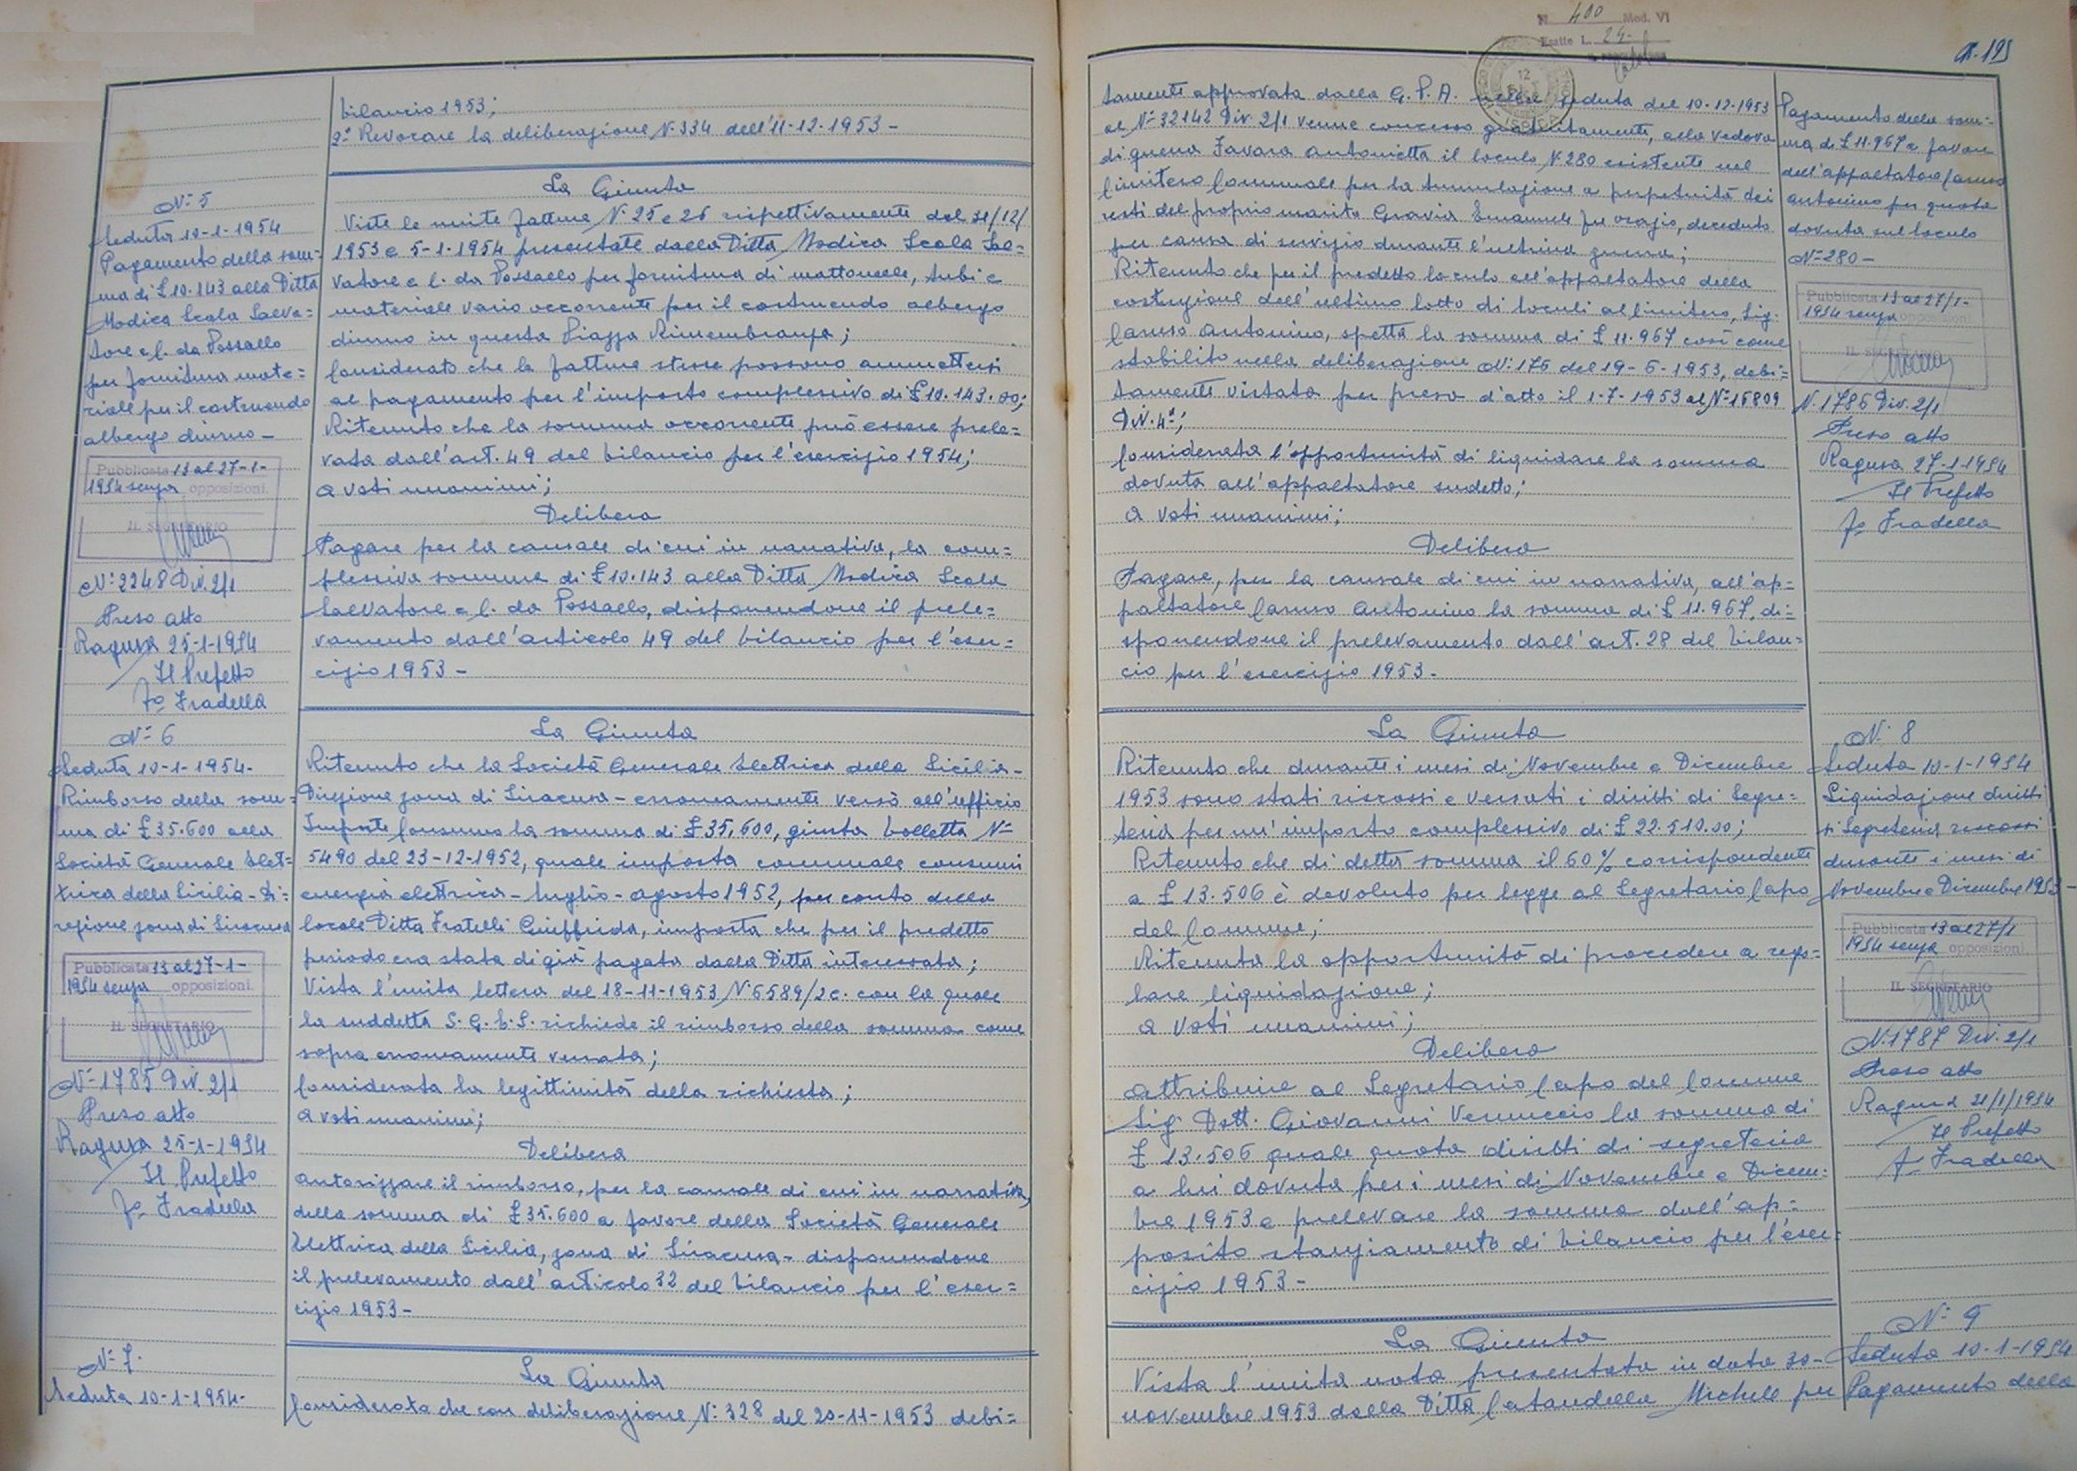 bilancio 1953;
2° Revocare la deliberazione N. 334 dell'11-12-1953 -
N° 5
Seduta 10-1-1954
Pagamento della som=
ma di £ 10.143 alla Ditta
Modica Scala Salva=
tore e C. da Possallo
per fornitura mate=
riale per il costruendo
albergo diurno -
Pubblicata 13 al 27-1-
1954 senza opposizioni.
IL SEGRETARIO
N° 2248 Div. 2/1
Preso atto
Ragusa 25-1-1954
Il Prefetto
Fo Fradella
La Giunta
Viste le unite fatture N. 25 e 26 rispettivamente del 31/12/
1953 e 5-1-1954 presentate dalla Ditta Modica Scala Sal=
vatore e C. da Possallo per fornitura di mattonelle, tubi e
materiale vario occorrente per il costruendo albergo
diurno in questa Piazza Rimembranza;
Considerato che le fatture stesse possono ammettersi
al pagamento per l'importo complessivo di £ 10.143.00;
Ritenuto che la somma occorrente può essere prele=
vata dall'art. 49 del bilancio per l'esercizio 1954;
a voti unanimi;
Delibera
Pagare per la causale di cui in narrativa, la com=
plessiva somma di £ 10.143 alla Ditta Modica Scala
Salvatore e C. da Possallo, disponendone il prele=
vamento dall'articolo 49 del bilancio per l'eser=
cizio 1953 -
N° 6
Seduta 10-1-1954-
Rimborso della som=
ma di £ 35.600 alla
Società Generale Elet=
trica della Sicilia - Di=
rezione zona di Siracusa
Pubblicata 13 al 27-1-
1954 senza opposizioni.
IL SEGRETARIO
N° 1785 Div. 2/1
Preso atto
Ragusa 25-1-1954
Il Prefetto
Fo Fradella
La Giunta
Ritenuto che la Società Generale Elettrica della Sicilia -
Direzione zona di Siracusa - erroneamente versò all'ufficio
Imposte Consumo la somma di £ 35.600, giusta bolletta N°
5490 del 23-12-1952, quale imposta comunale consumi
energia elettrica - luglio - agosto 1952, per conto della
locale Ditta Fratelli Giuffrida, imposta che per il predetto
periodo era stata di già pagata dalla Ditta interessata;
Vista l'unita lettera del 18-11-1953 N. 6589/2c. con la quale
la suddetta S.G.E.S. richiede il rimborso della somma come
sopra erroneamente versata;
Considerata la legittimità della richiesta;
a voti unanimi;
Delibera
autorizzare il rimborso, per la causale di cui in narrativa,
della somma di £ 35.600 a favore della Società Generale
Elettrica della Sicilia, zona di Siracusa - disponendone
il prelevamento dall'articolo 32 del bilancio per l'eser=
cizio 1953 -
N° 7.
Seduta 10-1-1954-
La Giunta
Considerato che con deliberazione N. 328 del 20-11-1953 debi=
N. 400 Mod. VI
Esatte L. 24.
N. 195
tamente approvata dalla G.P.A. nella seduta del 10-12-1953
al N° 32142 Div. 2/1 venne concesso gratuitamente, alla vedova
di guerra Favara Antonietta il loculo N. 280 esistente nel
Cimitero Comunale per la tumulazione a perpetuità dei
resti del proprio marito Gravia Emanuele fu Orazio, deceduto
per causa di servizio durante l'ultima guerra;
Ritenuto che per il predetto loculo all'appaltatore della
costruzione dell'ultimo lotto di loculi al Cimitero, Sig.
Caruso Antonino, spetta la somma di £ 11.967 così come
stabilito nella deliberazione N. 176 del 19-6-1953, debi=
tamente vistata per presa d'atto il 1-7-1953 al N° 15809
Div. 4ª;
Considerata l'opportunità di liquidare la somma
dovuta all'appaltatore sudetto;
a voti unanimi;
Delibera
Pagare, per la causale di cui in narrativa, all'ap=
paltatore Caruso Antonino la somma di £ 11.967, di=
sponendone il prelevamento dall'art. 28 del bilan=
cio per l'esercizio 1953.
Pagamento della som=
ma di £ 11.967 a favore
dell'appaltatore Caruso
Antonino per quota
dovuta sul loculo
N° 280 -
Pubblicata 13 al 27/1-
1954 senza opposizioni
IL SEGRETARIO
N. 1786 Div. 2/1
Preso atto
Ragusa 27-1-1954
Il Prefetto
Fo Fradella
La Giunta
Ritenuto che durante i mesi di Novembre e Dicembre
1953 sono stati riscossi e versati i diritti di Segre=
teria per un'importo complessivo di £ 22.510.00;
Ritenuto che di detta somma il 60% corrispondente
a £ 13.506 è devoluto per legge al Segretario Capo
del Comune;
Ritenuta la opportunità di procedere a rego=
lare liquidazione;
a voti unanimi;
Delibera
attribuire al Segretario Capo del Comune
Sig. Dott. Giovanni Vernuccio la somma di
£ 13.506 quale quota diritti di segreteria
a lui dovuta per i mesi di Novembre e Dicem=
bre 1953 e prelevare la somma dall'ap=
posito stanziamento di bilancio per l'eser=
cizio 1953 -
N. 8
Seduta 10-1-1954
Liquidazione diritti
di Segreteria riscossi
durante i mesi di
Novembre e Dicembre 1953 -
Pubblicata 13 al 27/1
1954 senza opposizioni
IL SEGRETARIO
N. 1787 Div. 2/1
Preso atto
Ragusa 21/1/1954
Il Prefetto
Fo Fradella
La Giunta
Vista l'unita nota presentata in data 30-
novembre 1953 dalla Ditta Cataudella Michele per
N° 9
Seduta 10-1-1954
Pagamento della